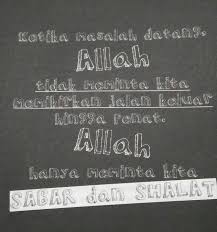 Ketika masalah datang,
Allah
tidak meminta kita
memikirkan jalan keluar
hingga penat.
Allah
hanya meminta kita
SABAR dan SHALAT